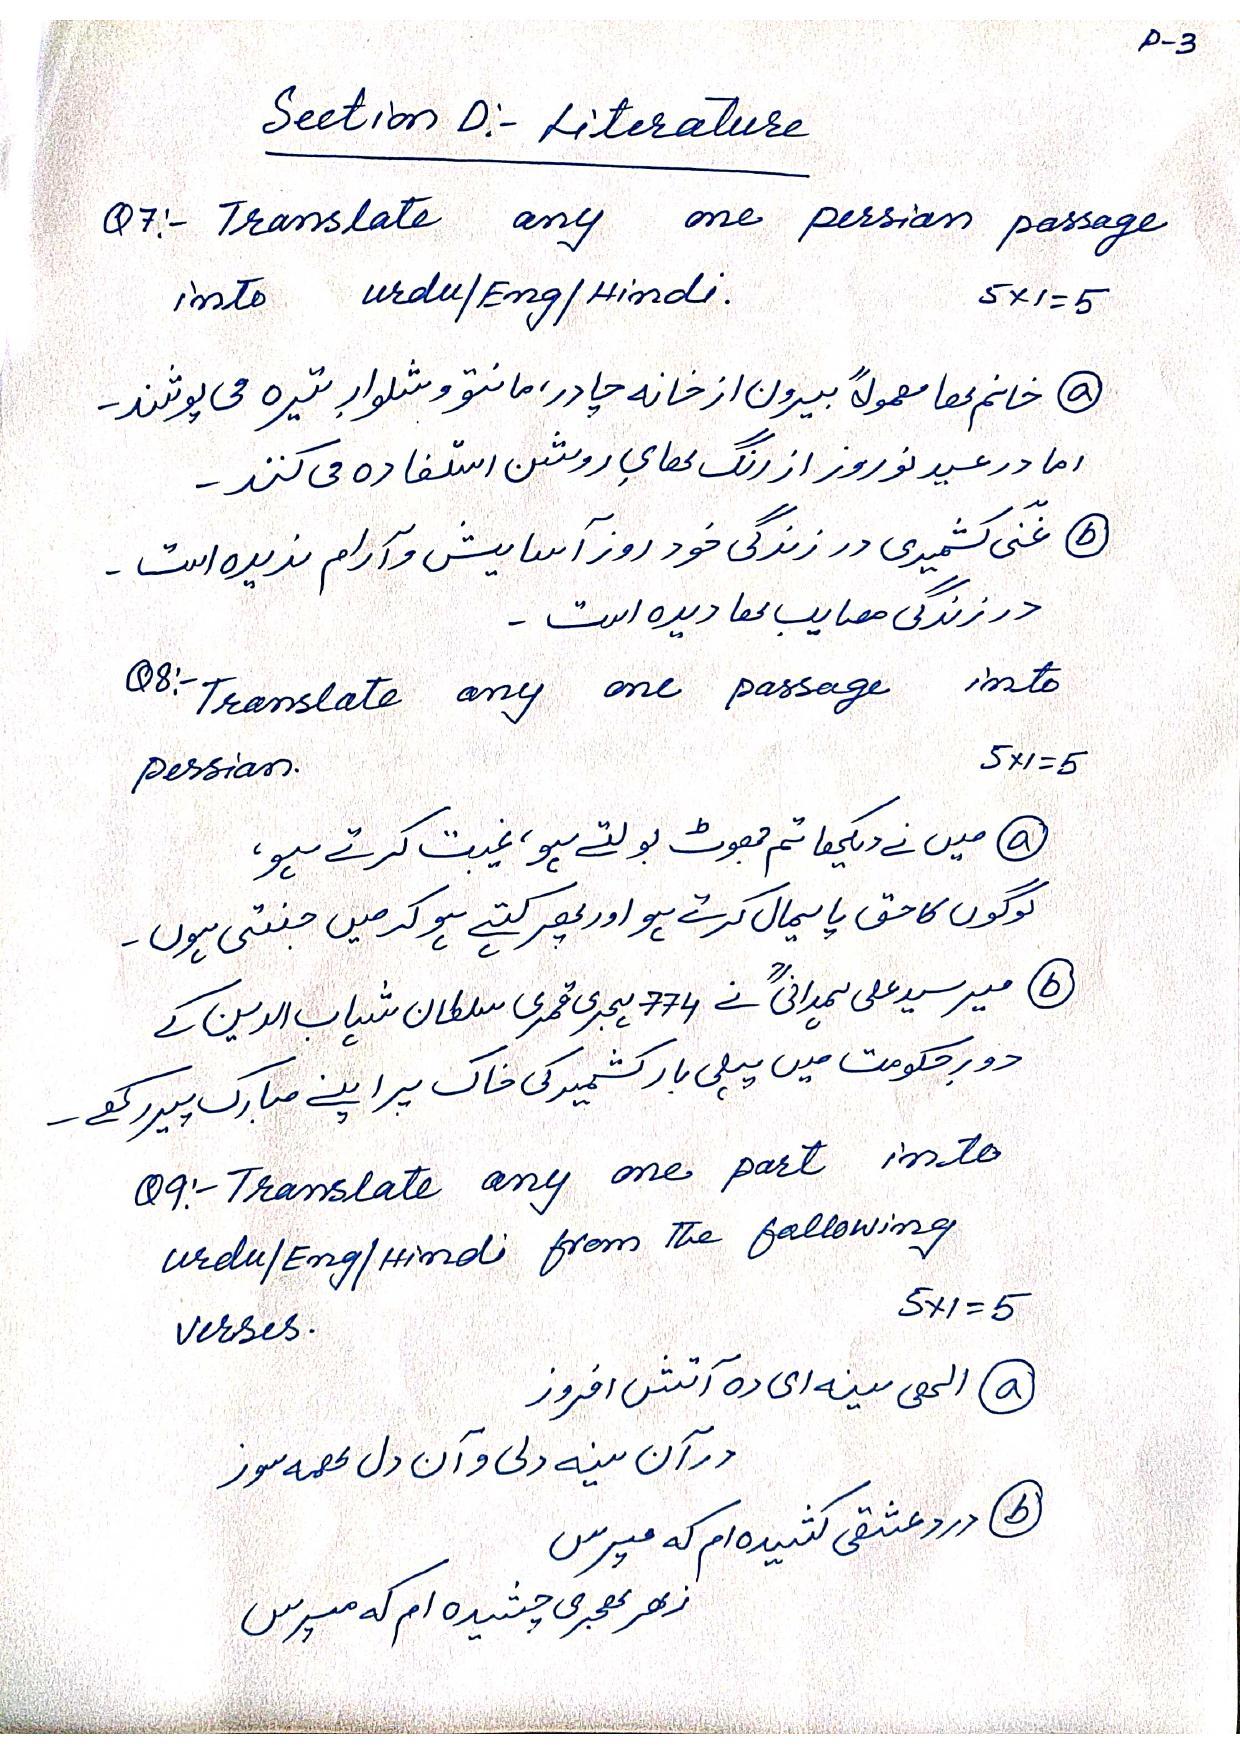 P-3
Section D:- Literature
Q7:- Translate any one persian passage
into urdu/Eng/Hindi. 5×1=5
ⓐ خانم ھا معمولاً بیرون از خانہ چادر، مانتو و شلوارِ تیرہ می پوشند۔
اما در عید نوروز از رنگ ھایِ روشن استفادہ می کنند۔
ⓑ غنّی کشمیری در زندگی خود روز آسایش و آرام ندیدہ است۔
در زندگی مصایب ھا دیدہ است۔
Q8:- Translate any one passage into
persian. 5×1=5
ⓐ میں نے دیکھا تم جھوٹ بولتے ہو، غیبت کرتے ہو،
لوگوں کا حق پایمال کرتے ہو اور پھر کہتے ہو کہ میں جنتی ہوں۔
ⓑ میر سید علی ہمدانیؒ نے 774 ہجری قمری سلطان شہاب الدین کے
دورِ حکومت میں پہلی بار کشمیر کی خاک پر اپنے مبارک پیر رکھے۔
Q9:- Translate any one part into
urdu/Eng/Hindi from the following
verses. 5×1=5
ⓐ الھی سینہ ای دہ آتش افروز
در آن سینہ دلی و آن دل ھمہ سوز
ⓑ درد عشقی کشیدہ ام کہ مپرس
زھر ھجری چشیدہ ام کہ مپرس